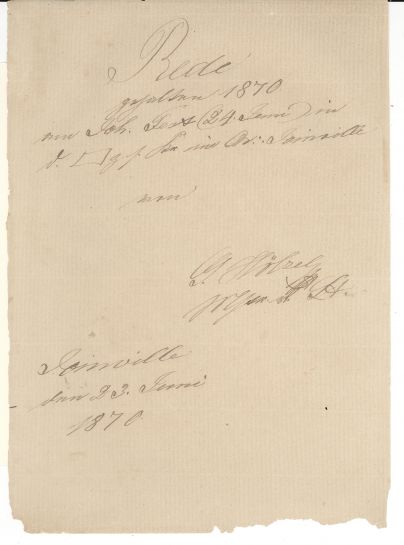 Rede
gehalten 1870
am Joh. Fest (24. Juni) in
d. □ z. f. im Or: Joinville
von
Joinville
den 23. Juni
1870